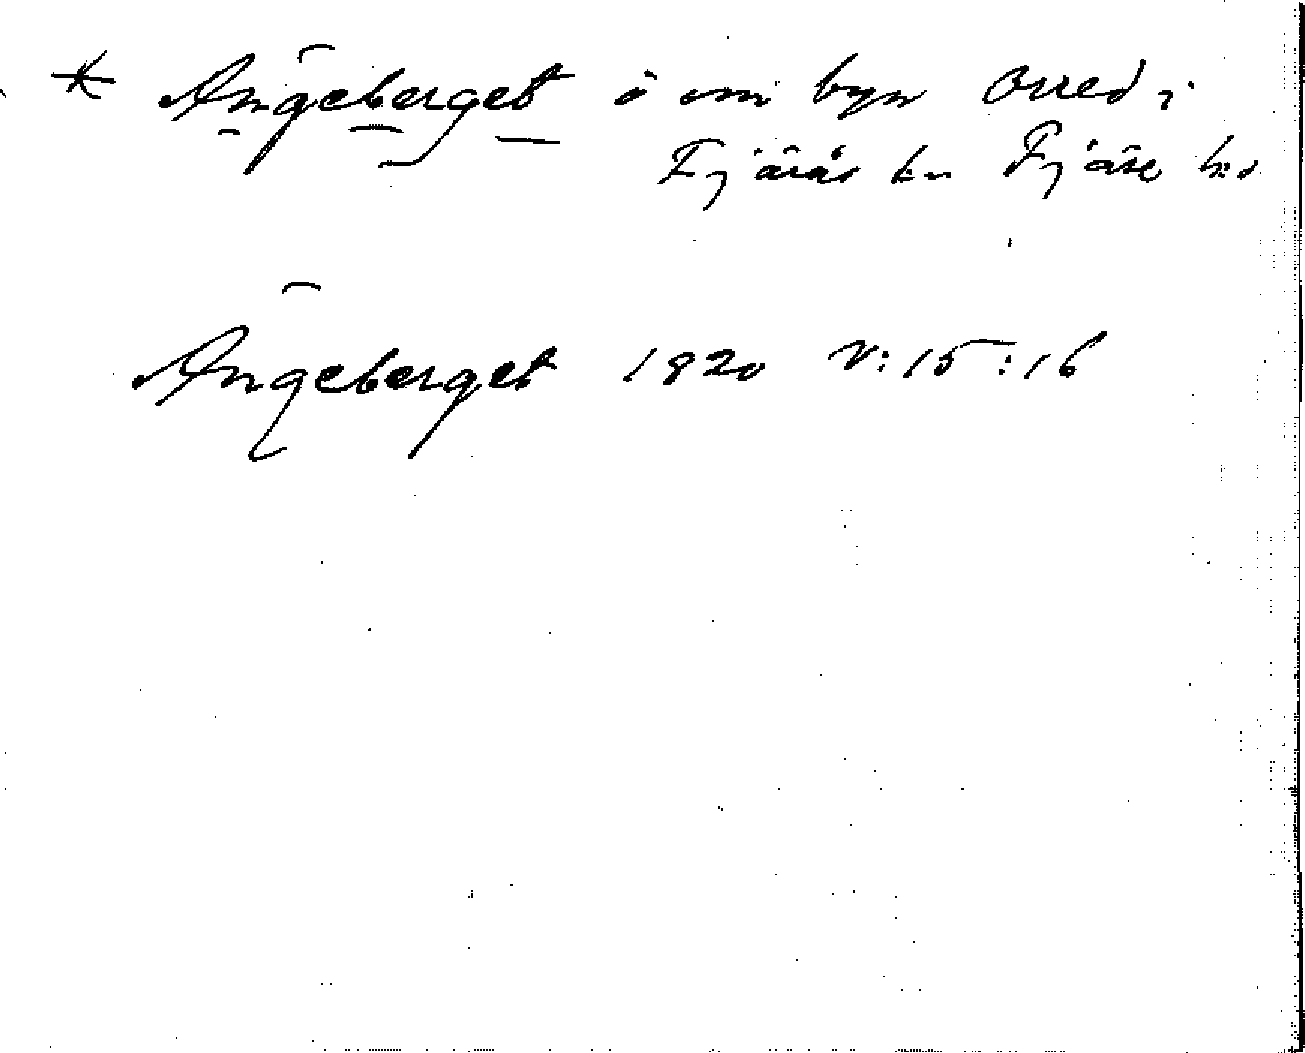 * Ängeberget ö om byn Orred i
Fjärås sn Fjäre hd
Ängeberget 1820 V:15:16